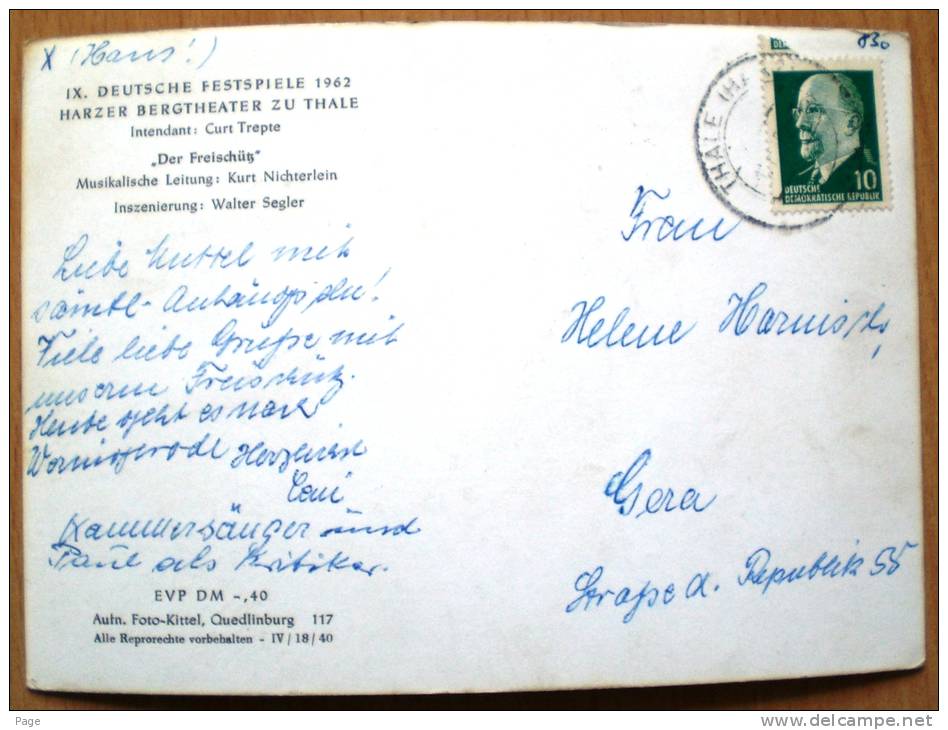 x (Hans!)
830
IX. DEUTSCHE FESTSPIELE 1962
HARZER BERGTHEATER ZU THALE
Intendant: Curt Trepte
„Der Freischütz"
Musikalische Leitung: Kurt Nichterlein
Inszenierung: Walter Segler
THALE (HARZ)
10
DEUTSCHE
DEMOKRATISCHE REPUBLIK
Liebe Muttel mit
sämtl-
Viele liebe Grüße mit
unserm Freischütz.
Heute geht es nach
Wernigerode Herzlichst
Kammersänger und
Paul als Kritiker.
Frau
Helene Harnisch,
Gera
Straße d. Republik 55
EVP DM -,40
Aufn. Foto-Kittel, Quedlinburg 117
Alle Reprorechte vorbehalten - IV/18/40
Page
www.delcampe.net